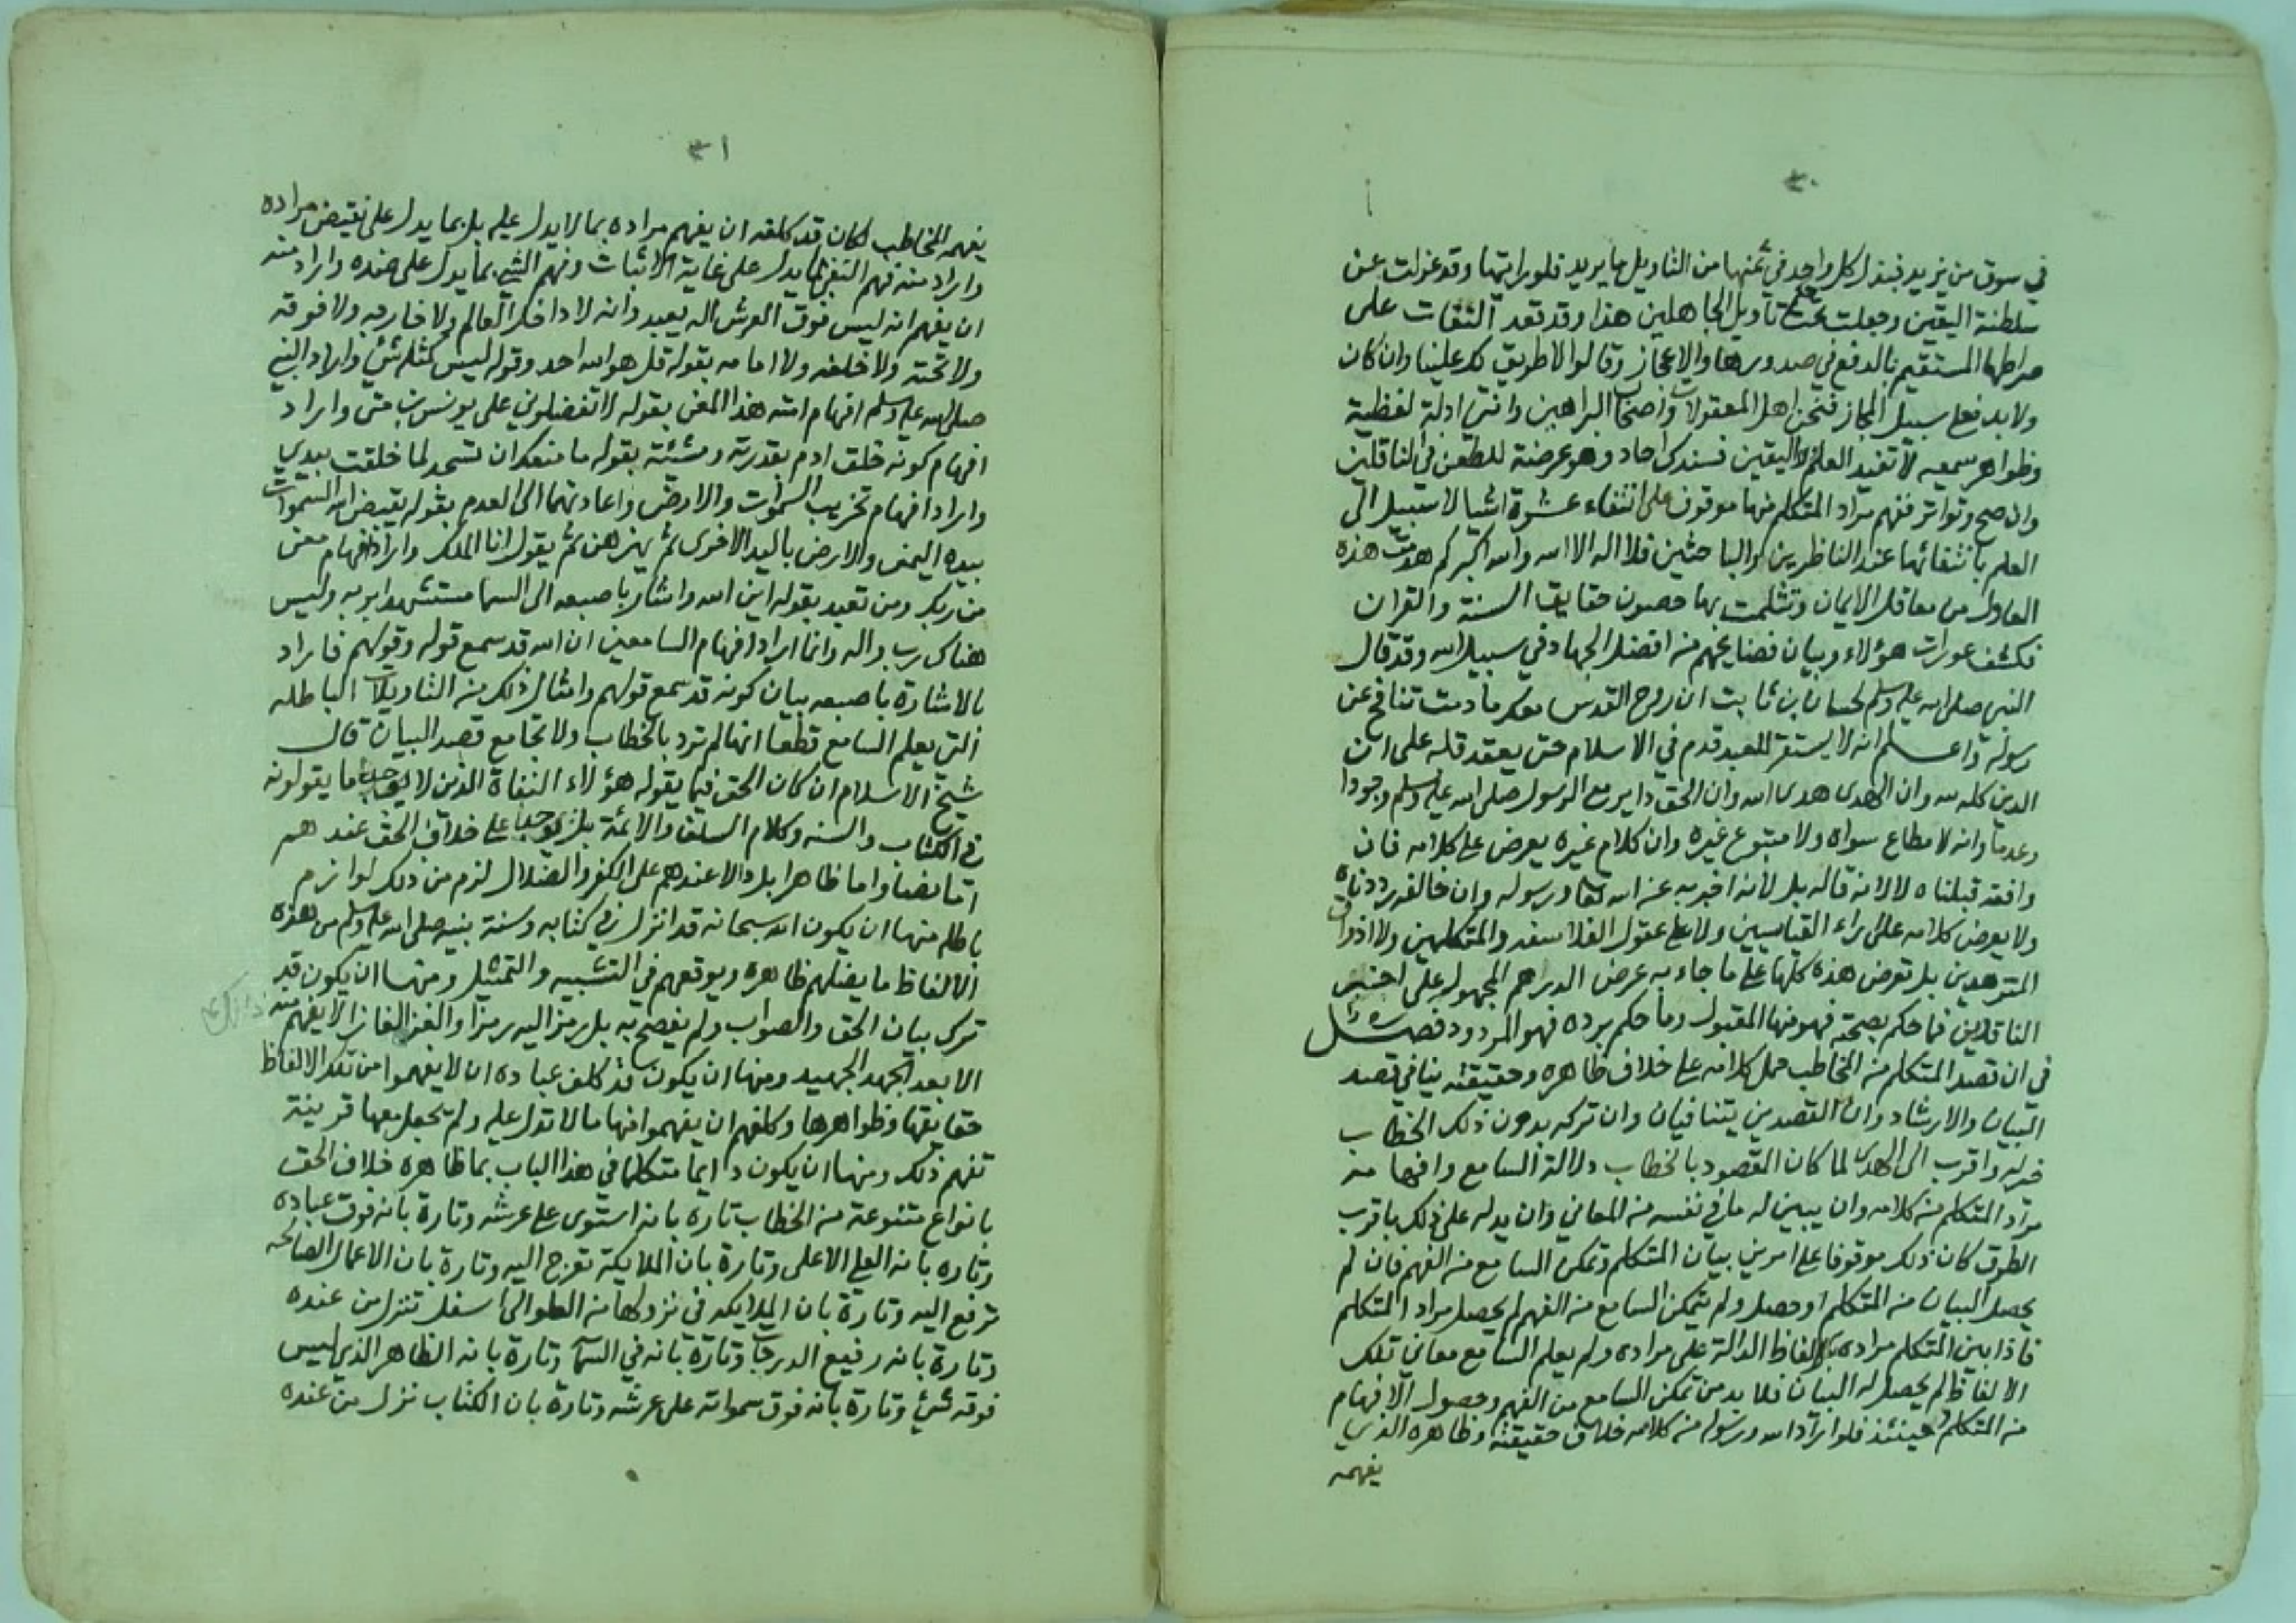 ٣٠
في سوق من يزيد فبذل كل واحد في ثمنها من التاويل ما يريد فلو رايتها وقد عزلت عن
سلطنة اليقين وجعلت تحت تأويل الجاهلين هذا وقد قعد النفات على
صراطها المستقيم بالدفع في صدورها والاعجاز وقالوا لا طريق لك علينا وان كان
ولا بد فعلى سبيل المجاز فنحن اهل المعقولات واصحاب البراهين وانتي ادلة لفظية
وظواهر سمعيه لا تفيد العلم ولا اليقين فسندك احاد وهو عرضة للطعن في الناقلين
وان صح وتواتر ففهم مراد المتكلم منها موقوف على انتفاء عشرة اشيا لا سبيل الى
العلم بانتفائها عند الناظرين والباحثين فلا اله الا الله والله اكبر كم هدمت هذه
المعاول من معاقل الايمان وتثلمت بها حصون حقايق السنة والقران
فكشف عورات هؤلاء وبيان فضايحهم من افضل الجهاد في سبيل الله وقد قال
النبي صلى الله عليه وسلم لحسان بن ثابت ان روح القدس معك ما دمت تنافح عن
رسوله واعلم انه لا يستقر للعبد قدم في الاسلام حتى يعقد قلبه على ان
الدين كله لله وان الهدى هدى الله وان الحق داير مع الرسول صلى الله عليه وسلم وجودا
وعدما وانه لا مطاع سواه ولا متبوع غيره وان كلام غيره يعرض على كلامه فان
وافقه قبلناه لا لانه قاله بل لانه اخبر به عن الله تعا ورسوله وان خالفه رددناه
ولا يعرض كلامه على اراء القياسيين ولا على عقول الفلاسفه والمتكلمين ولا اذواق
المتزهدين بل تعرض هذه كلها على ما جاء به عرض الدراهم المجهوله على اخبر
الناقدين فما حكم بصحته فهو منها المقبول وما حكم برده فهو المردود فصل
في ان قصد المتكلم من المخاطب حمل كلامه على خلاف ظاهره وحقيقته ينافي قصد
البيان والارشاد وان القصدين يتنافيان وان تركه بدون ذلك الخطاب
خير له واقرب الى الهدى لما كان المقصود بالخطاب دلالة السامع وافهامه
مراد المتكلم من كلامه وان يبين له ما في نفسه من المعاني وان يدله على ذلك باقرب
الطرق كان ذلك موقوفا على امرين بيان المتكلم وتمكن السامع من الفهم فان لم
يحصل البيان من المتكلم او حصل ولم يتمكن السامع من الفهم لم يحصل مراد المتكلم
فاذا بين المتكلم مراده بالالفاظ الدالة على مراده ولم يعلم السامع معاني تلك
الالفاظ لم يحصل له البيان فلا بد من تمكن السامع من الفهم وحصول الافهام
من المتكلم وحينئذ فلو اراد الله ورسوله من كلامه خلاف حقيقته وظاهره الذي
يفهمه
٣١
يفهمه المخاطب لكان قد كلفه ان يفهم مراده بما لا يدل عليه بل بما يدل على نقيض مراده
واراد منه فهم النفي بما يدل على غاية الاثبات وفهم الشي بما يدل على ضده واراد منه
ان يفهم انه ليس فوق العرش اله يعبد وانه لا داخل العالم ولا خارجه ولا فوقه
ولا تحته ولا خلفه ولا امامه بقوله قل هو الله احد وقوله ليس كمثله شئ واراد النبي
صلى الله عليه وسلم افهام امته هذا المعنى بقوله لا تفضلوني على يونس بن متى واراد
افهام كونه خلق ادم بقدرته ومشئته بقوله ما منعك ان تسجد لما خلقت بيدي
واراد افهام تخريب السموات والارض واعادتهما الى العدم بقوله يقبض الله السموات
بيده اليمنى والارض باليد الاخرى ثم يهزهن ثم يقول انا الملك واراد افهام معنى
من ربك ومن تعبد بقوله اين الله واشار باصبعه الى السما مستشهدا بربه وليس
هناك رب واله وانما اراد افهام السامعين ان الله قد سمع قوله وقولهم فاراد
بالاشارة باصبعه بيان كونه قد سمع قولهم وامثال ذلك من التاويلات الباطله
التي يعلم السامع قطعا انها لم ترد بالخطاب ولا تجامع قصد البيان قال
شيخ الاسلام ان كان الحق فيما يقوله هؤلاء النفاة الذين لا يوجد ما يقولونه
في الكتاب والسنه وكلام السلف والائمة بل يوجد على خلاف الحق عندهم
اما نصا واما ظاهرا بل دالا عندهم على الكفر والضلال لزم من ذلك لوازم
باطله منها ان يكون الله سبحانه قد انزل في كتابه وسنة نبيه صلى الله عليه وسلم من هذه
الالفاظ ما يضلهم ظاهره ويوقعهم في التشبيه والتمثيل ومنها ان يكون قد
ترك بيان الحق والصواب ولم يفصح به بل رمز اليه رمزا والغز الغازا لا يفهم منه
الا بعد الجهد الجهيد ومنها ان يكون قد كلف عباده ان لا يفهموا من تلك الالفاظ
حقايقها وظواهرها وكلفهم ان يفهموا منها ما لا تدل عليه ولم يجعل معها قرينة
تفهم ذلك ومنها ان يكون دايما متكلما في هذا الباب بما ظاهره خلاف الحق
بانواع متنوعة من الخطاب تاره بانه استوى على عرشه وتارة بانه فوق عباده
وتاره بانه العلي الاعلى وتارة بان الملايكة تعرج اليه وتارة بان الاعمال الصالحه
ترفع اليه وتارة بان الملايكه في نزولها من العلو الى اسفل تنزل من عنده
وتارة بانه رفيع الدرجات وتارة بانه في السما وتارة بانه الظاهر الذي ليس
فوقه شئ وتارة بانه فوق سمواته على عرشه وتارة بان الكتاب نزل من عنده